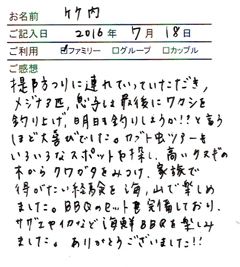 お名前 竹内
ご記入日 2016年 7月 18日
ご利用 ☑ファミリー □グループ □カップル
ご感想
堤防まつりに連れていっていただき、
メジナ3匹、息子は最後にワカシを
釣り上げ、明日も釣りしようか!?と言う
ほど大喜びでした。カブト虫ツアーも
いろいろなスポットを探し、高いクヌギの
木からクワガタをみつけ、家族で
得がたい経験を海、山で楽しめ
ました。BBQのセットも完備しており、
サザエやイカなど海鮮BBQを楽しみ
ました。ありがとうございました!!